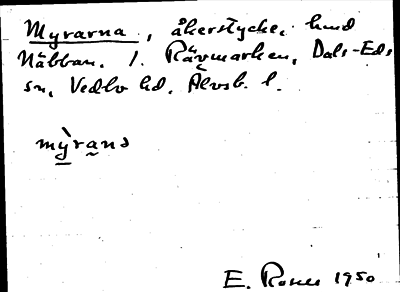 Myrarna, åkerstycke,
Näbban. 1. Rävmarken, Dals-Eds
sn, Vedbo hd. Älvsb. l.
mỳrans
E. 1950